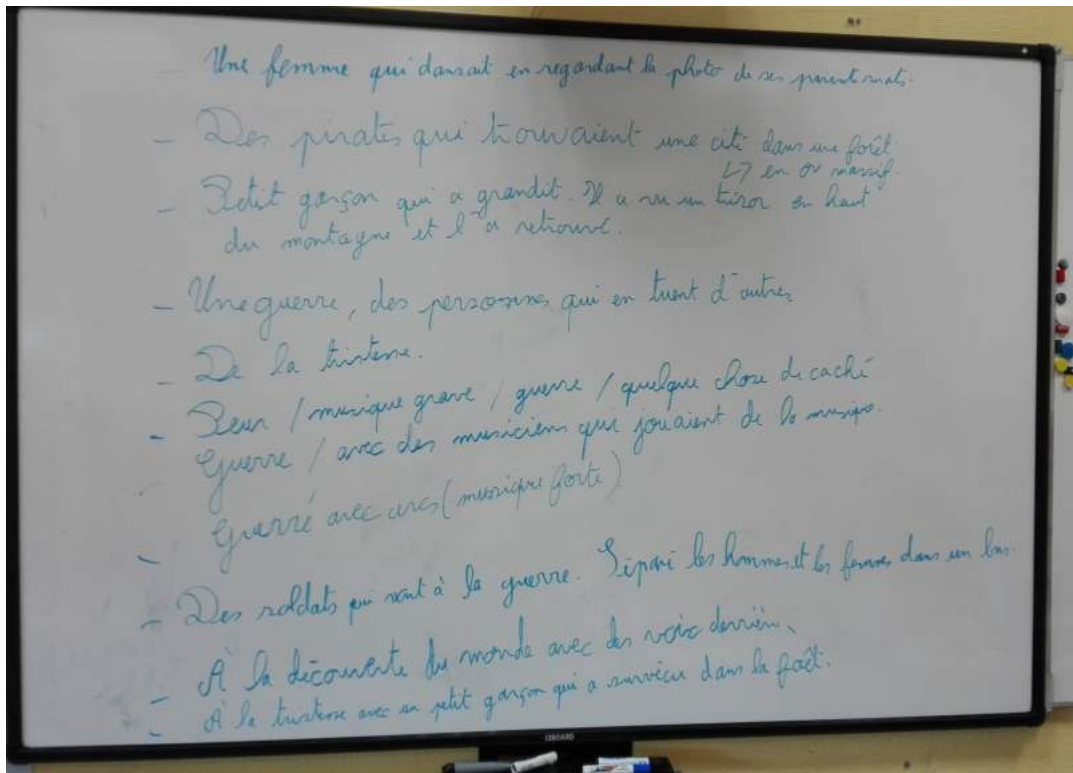 Une femme qui dansait en regardant la photo de ses parents morts.
- Des pirates qui trouvaient une cité dans une forêt.
↳ en or massif.
- Petit garçon qui a grandit. Il a vu un trésor en haut
du montagne et l'a retrouvé.
- Une guerre, des personnes qui en tuent d'autres
- De la tristesse.
- Peur / musique grave / guerre / quelque chose de caché
- Guerre / avec des musiciens qui jouaient de la musique.
- Guerre avec arcs (musique forte)
- Des soldats qui vont à la guerre. Séparé les hommes et les femmes dans un bus.
- À la découverte du monde avec des voix derrière.
- À la tristesse avec un petit garçon qui a survécu dans la forêt.